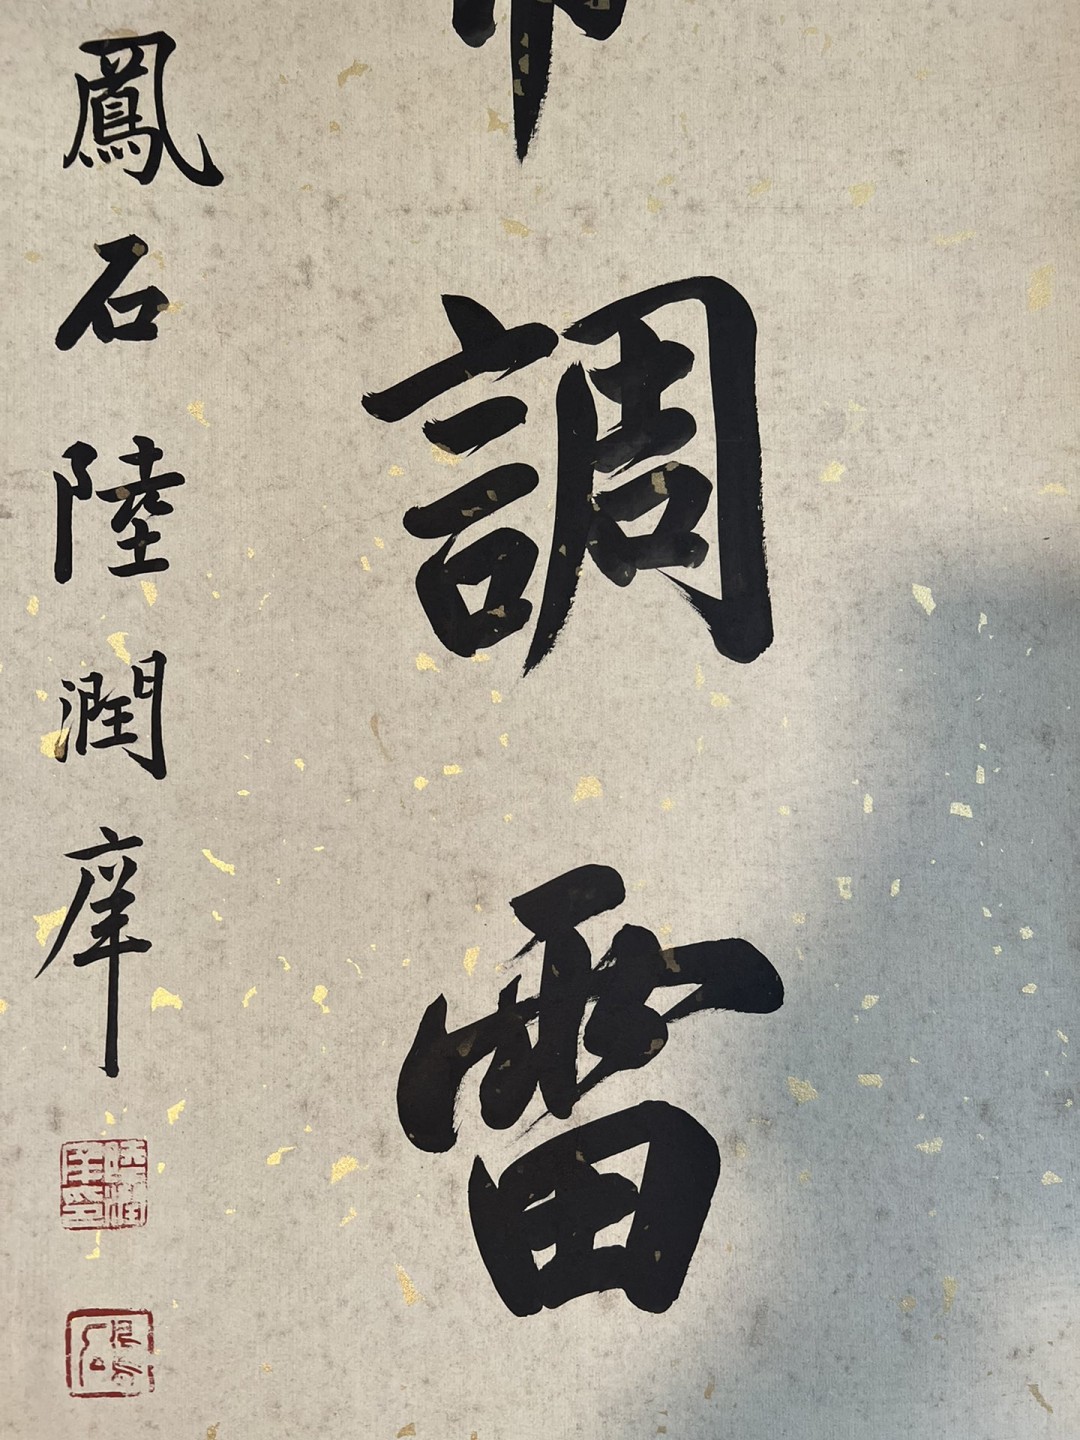 調雷
鳳石陸潤庠